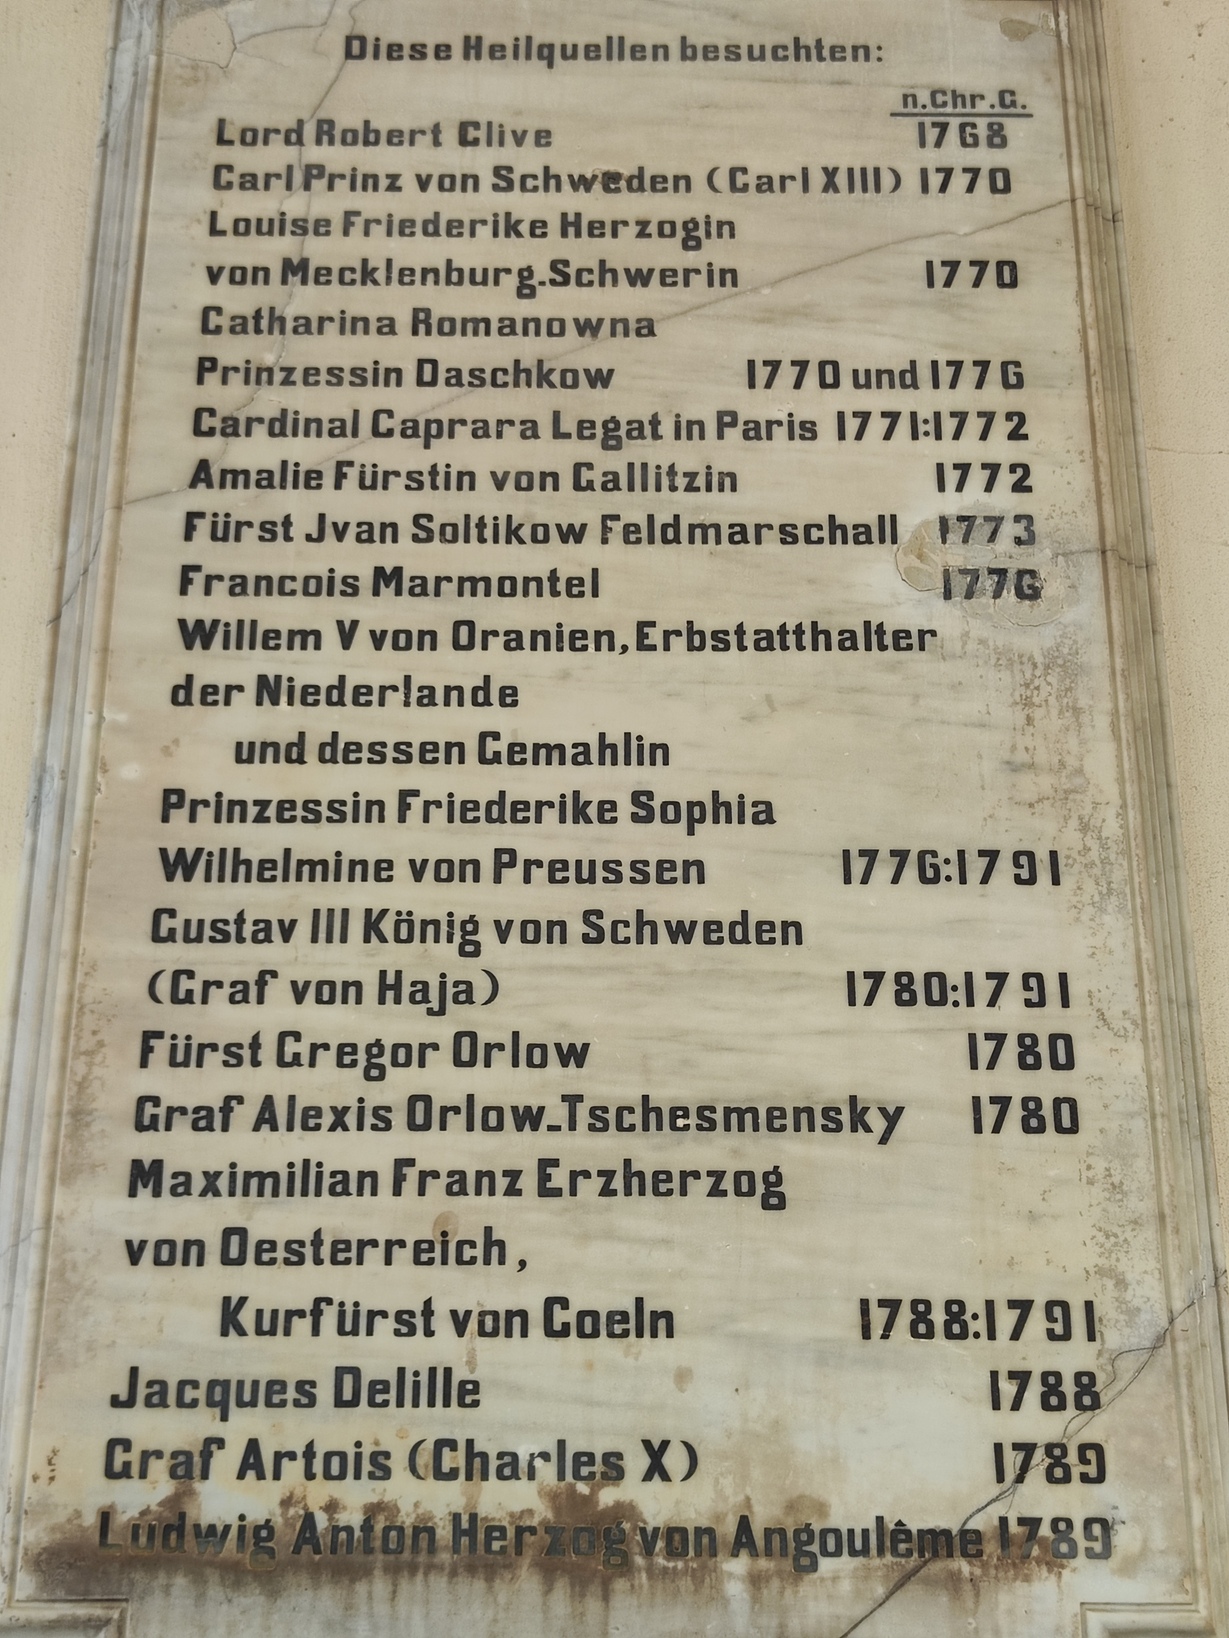 Diese Heilquellen besuchten:
n.Chr.G.
Lord Robert Clive 1768
Carl Prinz von Schweden (Carl XIII) 1770
Louise Friederike Herzogin
von Mecklenburg-Schwerin 1770
Catharina Romanowna
Prinzessin Daschkow 1770 und 1776
Cardinal Caprara Legat in Paris 1771:1772
Amalie Fürstin von Gallitzin 1772
Fürst Jvan Soltikow Feldmarschall 1773
Francois Marmontel 1776
Willem V von Oranien, Erbstatthalter
der Niederlande
und dessen Gemahlin
Prinzessin Friederike Sophia
Wilhelmine von Preussen 1776:1791
Gustav III König von Schweden
(Graf von Haja) 1780:1791
Fürst Gregor Orlow 1780
Graf Alexis Orlow-Tschesmensky 1780
Maximilian Franz Erzherzog
von Oesterreich,
Kurfürst von Coeln 1788:1791
Jacques Delille 1788
Graf Artois (Charles X) 1789
Ludwig Anton Herzog von Angoulême 1789